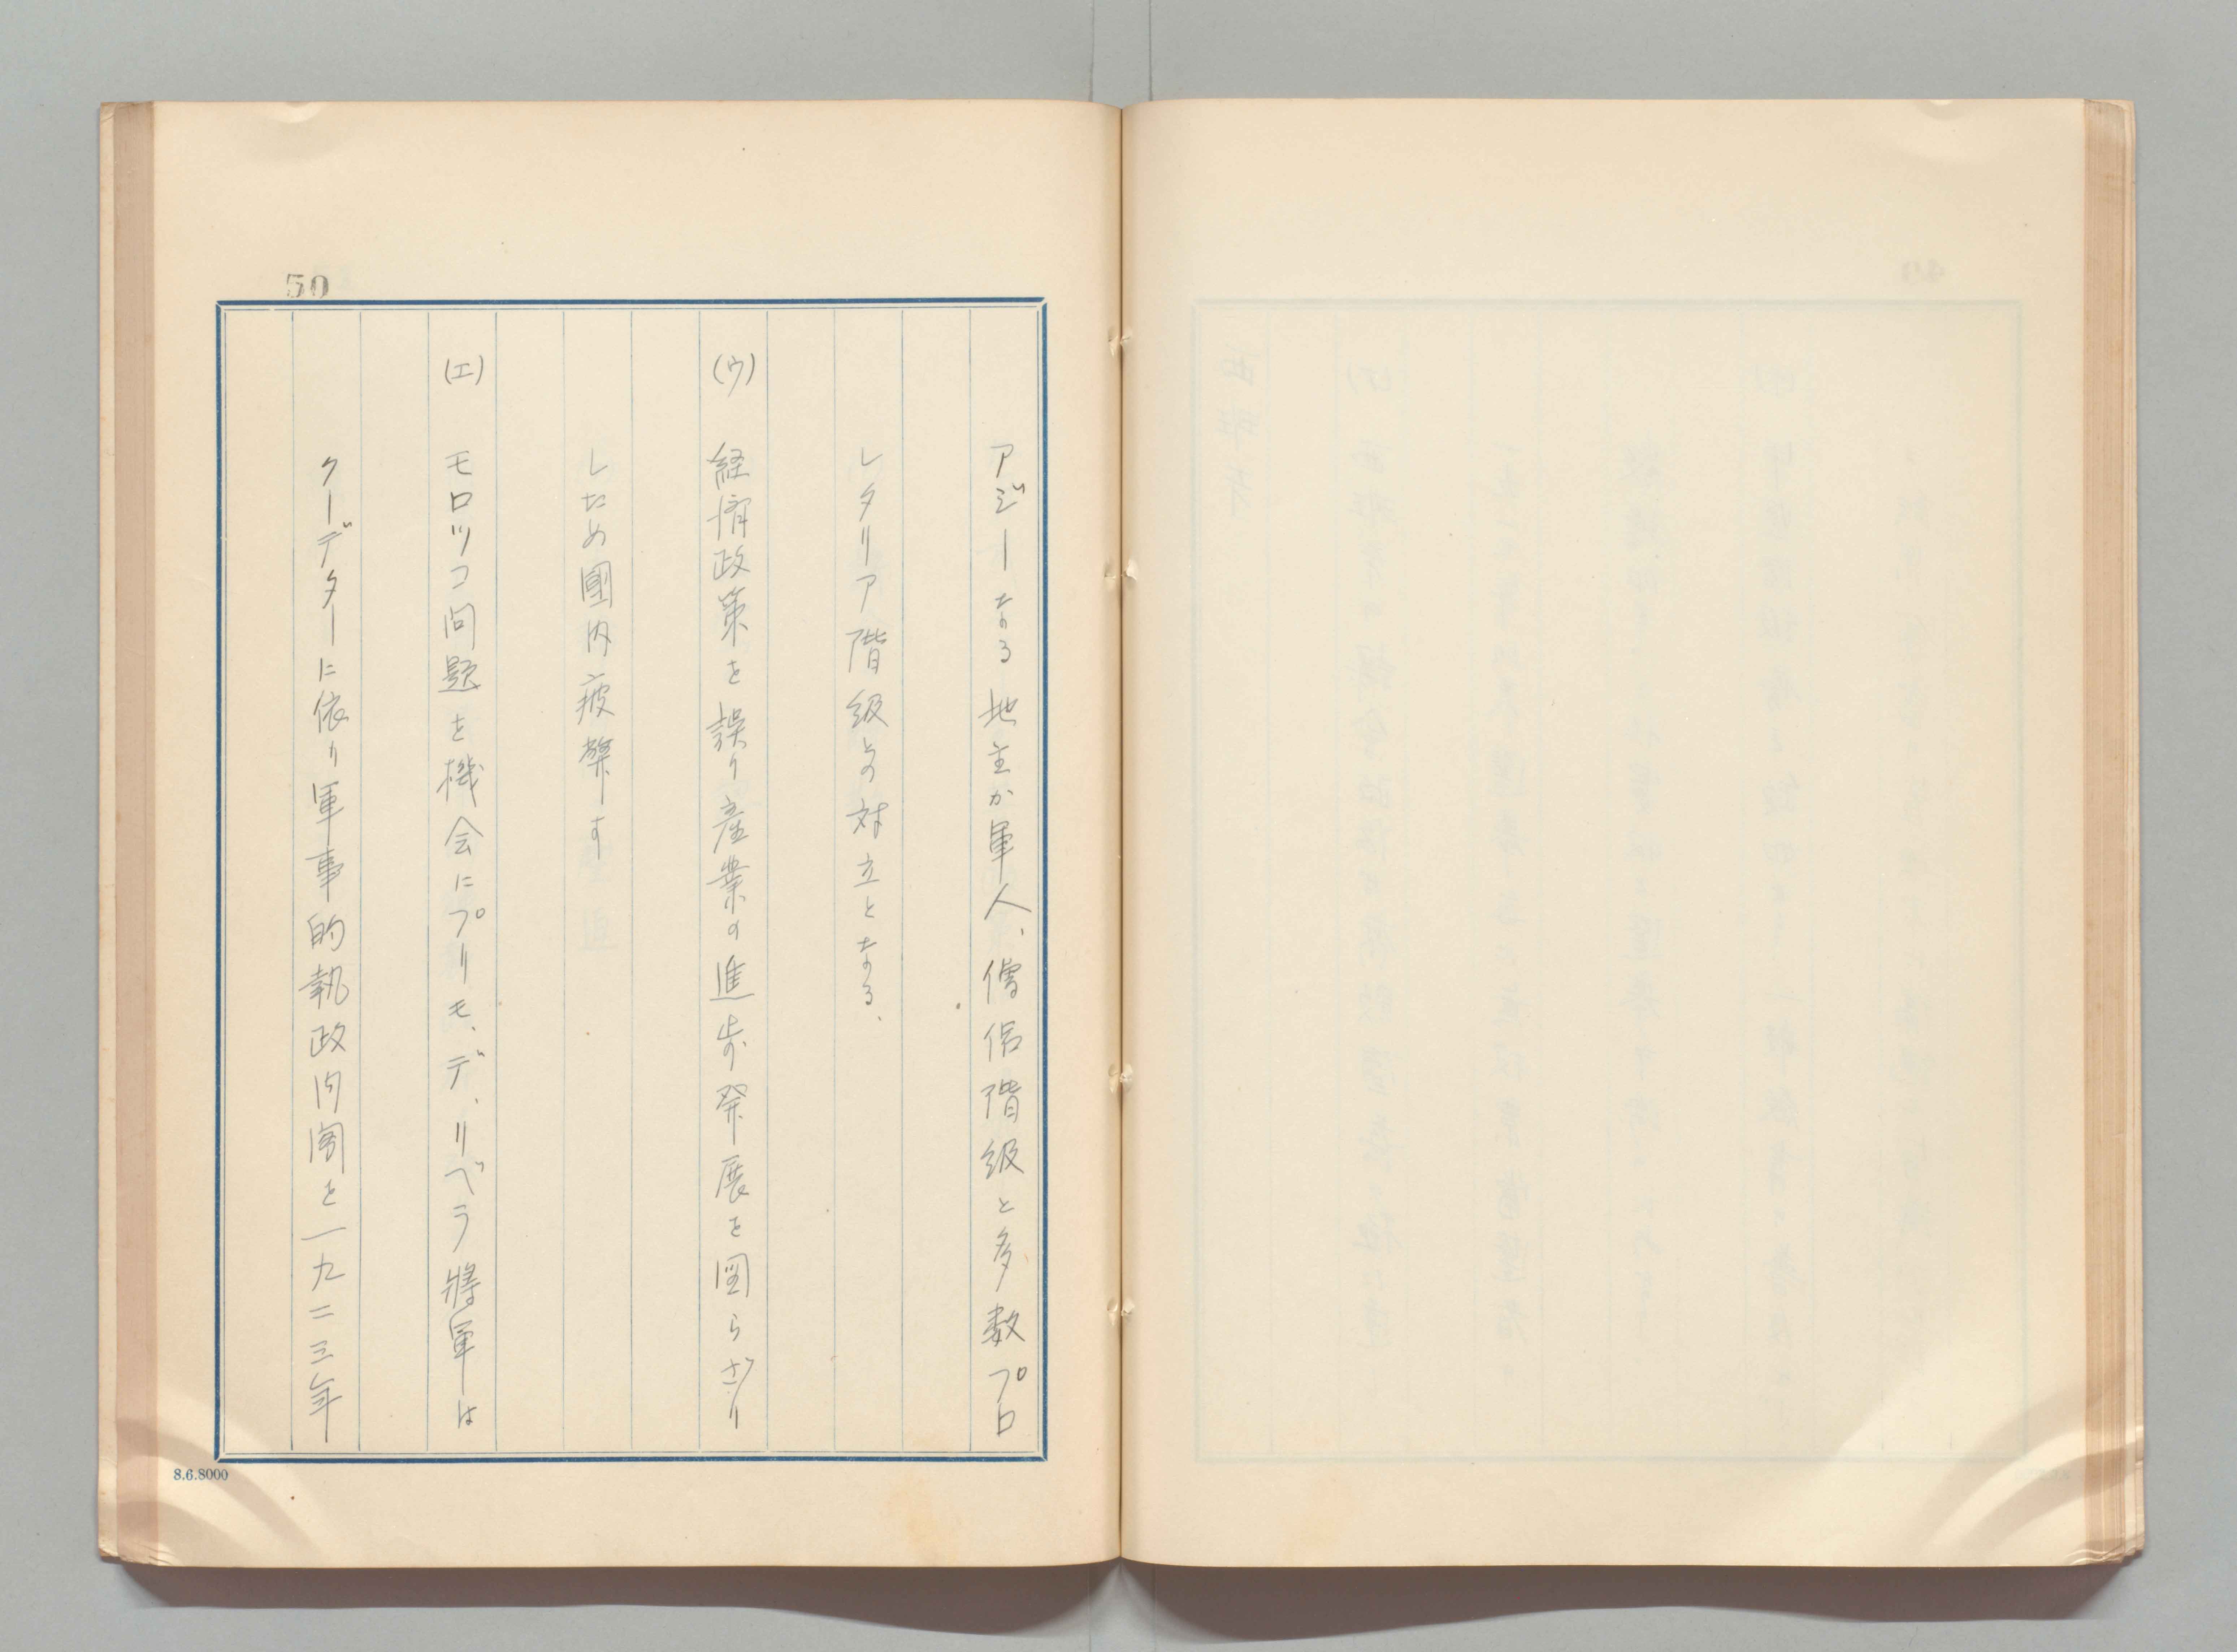 50
アジーなる地主か軍人、僧侶階級と多数プロ
レタリア階級との対立となる、
(ウ) 経済政策を誤り産業の進歩発展を図らざり
しため國内疲弊す
(エ) モロツコ問題を機会にプリモ、デ、リベラ將軍は
クーデターに依り軍事的執政内閣を一九二三年
8.6.8000